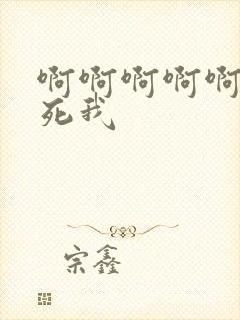 啊啊啊啊啊
死我
宗鑫